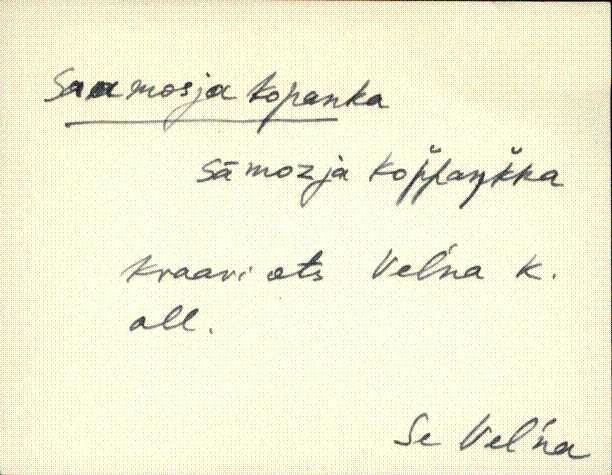 Saamosja kopanka
sāmozja kop̌p̌aŋǩka
kraavi ots Vel'na k.
all.
Se Vel'na